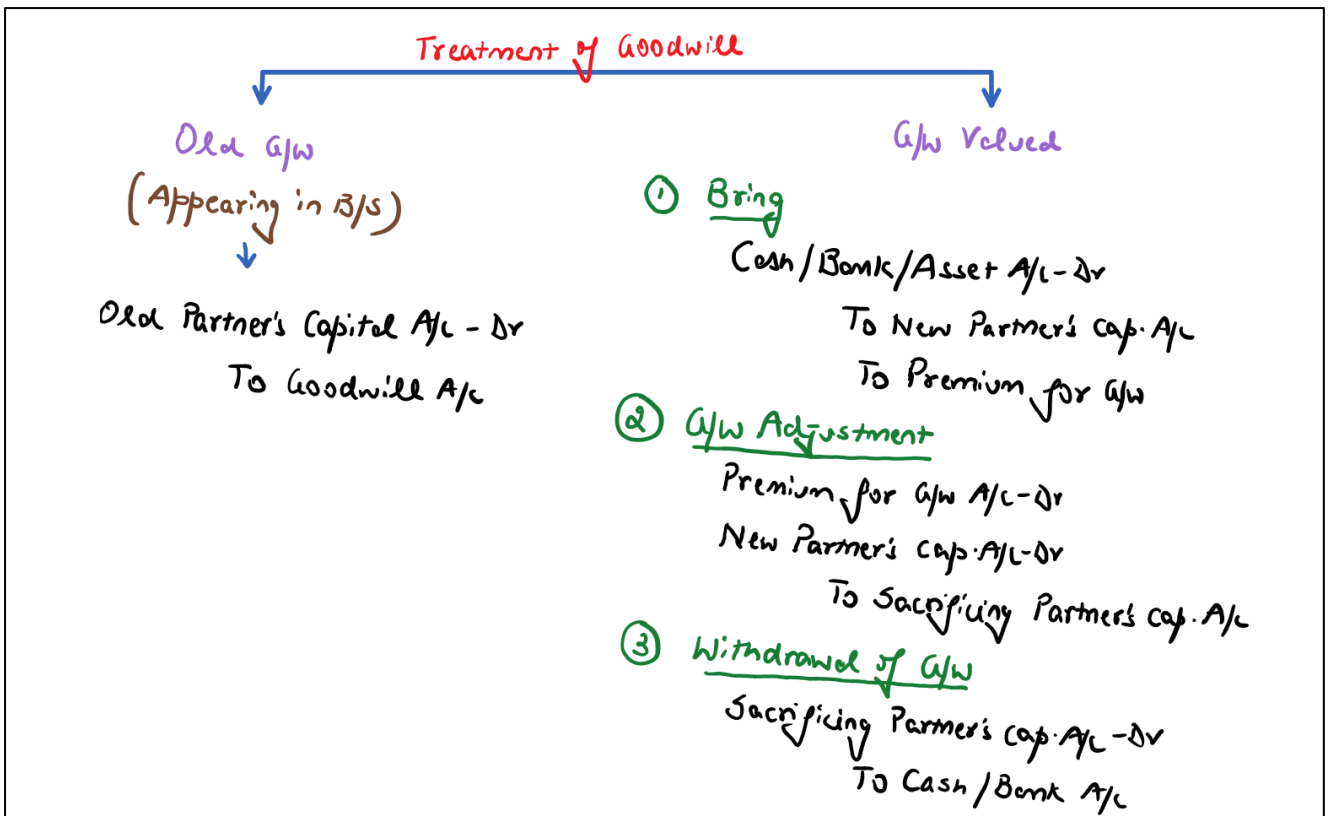 Treatment of Goodwill
Old G/w
(Appearing in B/S)
Old Partner's Capital A/c - Dr
To Goodwill A/c
G/w Valued
① Bring
Cash/Bank/Asset A/c-Dr
To New Partner's cap. A/c
To Premium for G/w
② G/w Adjustment
Premium for G/w A/c-Dr
New Partner's cap. A/c-Dr
To Sacrificing Partner's cap. A/c
③ Withdrawal of G/w
Sacrificing Partner's cap. A/c -Dr
To Cash/Bank A/c